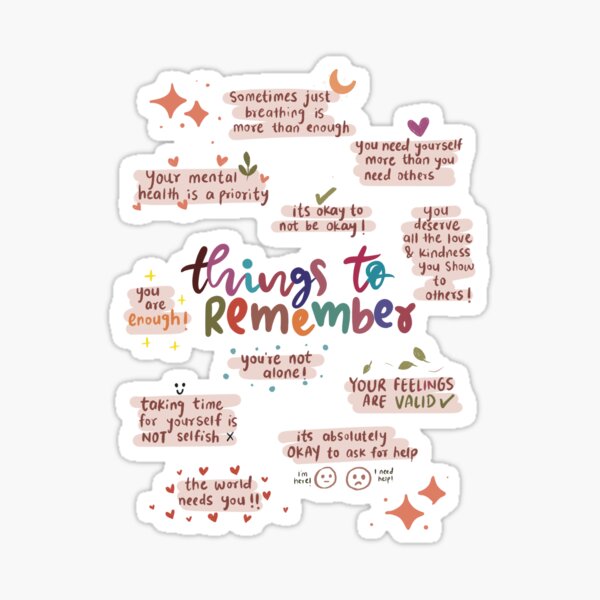 Sometimes just
breathing is
more than enough
you need yourself
more than you
need others
Your mental
health is a priority
its okay to
not be okay!
you
deserve
all the love
& kindness
you show
to
others!
things to
Remember
you
are
enough!
you're not
alone!
YOUR FEELINGS
ARE VALID
taking time
for yourself is
NOT selfish
its absolutely
OKAY to ask for help
i'm
here!
I need
help!
the world
needs you!!